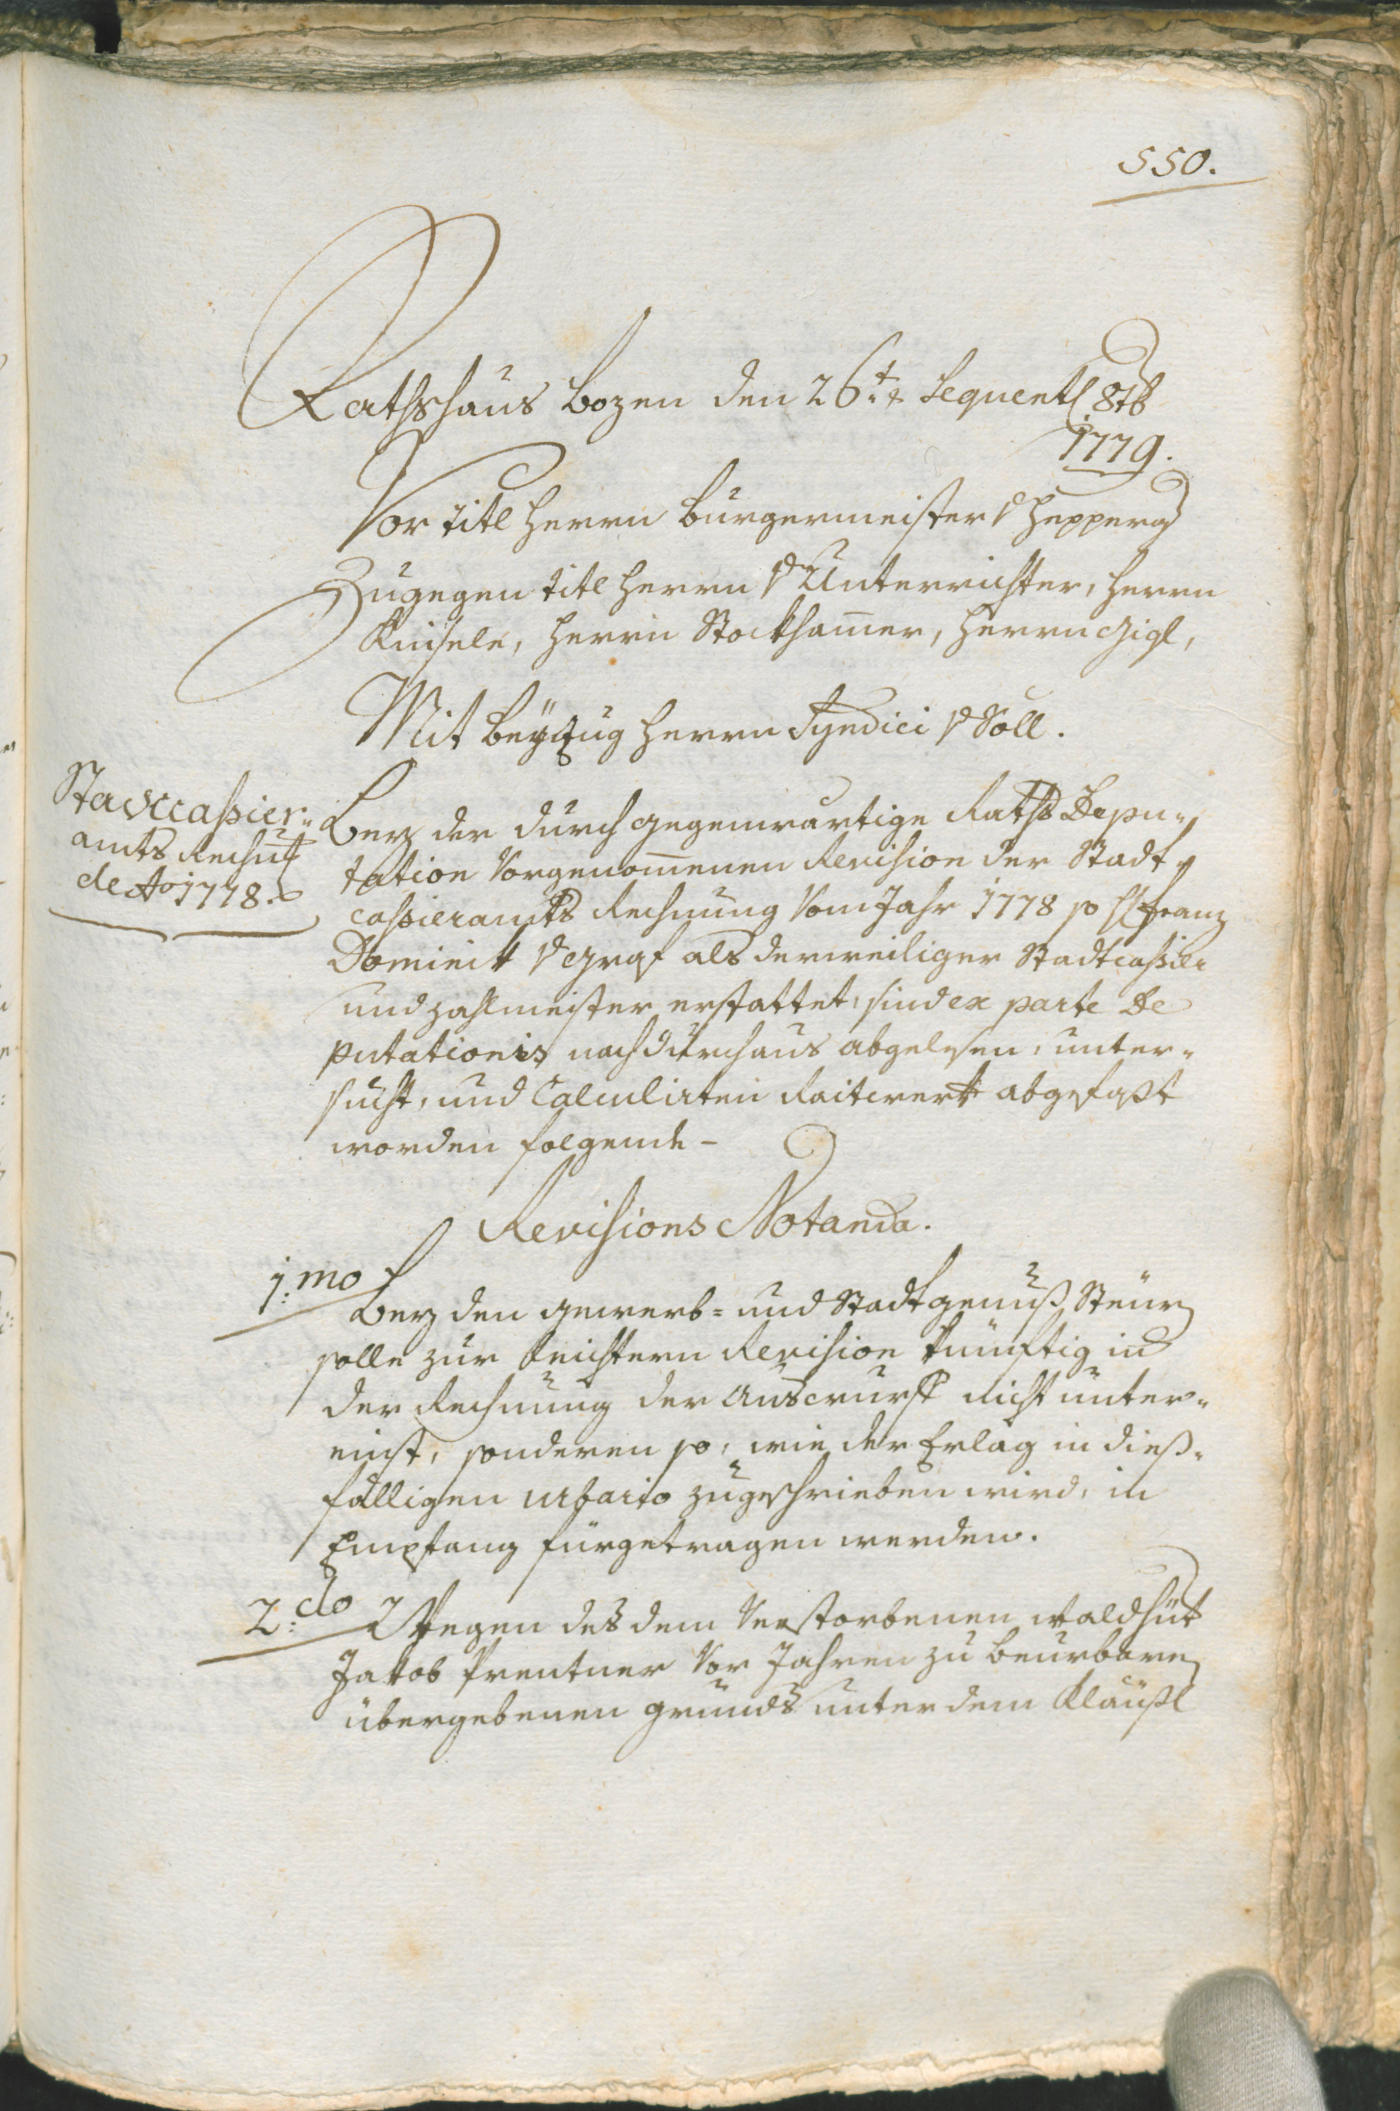 550.
Rathshaus Bozen den 26.t Sequentl 8tb
1779.
Vor titl Herrn Burgermeister v Hepperg
Zugegen titl Herrn v Unterrichter, Herrn
Kuisele, Herrn Stockhamer, Herrn Gigl,
Mit beyzug Herrn Syndici v Söll.
Stattcassier-
amts Rechnung
de Ao 1778.
Bey der durch gegenwärtige Raths Depu-
tation vorgenomenen Revision der Stadt
cassieramts Rechnung vom Jahr 1778 so Hl Franz
Dominik v Graf als derweiliger Stadtcassier
und zahlmeister erstattet, sind ex parte De
putationis nach durchaus abgelesen, unter-
sucht, und Calculirten Raitwerk abgefasst
worden folgende –
Revisions Notanda.
1.mo
Bey den gewerb- und Stadtgenuß Steur
solle zur leichtern Revision künftig in
der Rechnung der Auswurff nicht unter-
einst, sonderen so, wie der Erlag in dieß-
fälligen urbario zugeschrieben wird, in
Empfang fürgetragen werden.
2.do Wegen des dem verstorbenen waldhüt
Jakob Prentner vor Jahren zu beurbaren
übergebenen grunds unter dem Kläußl